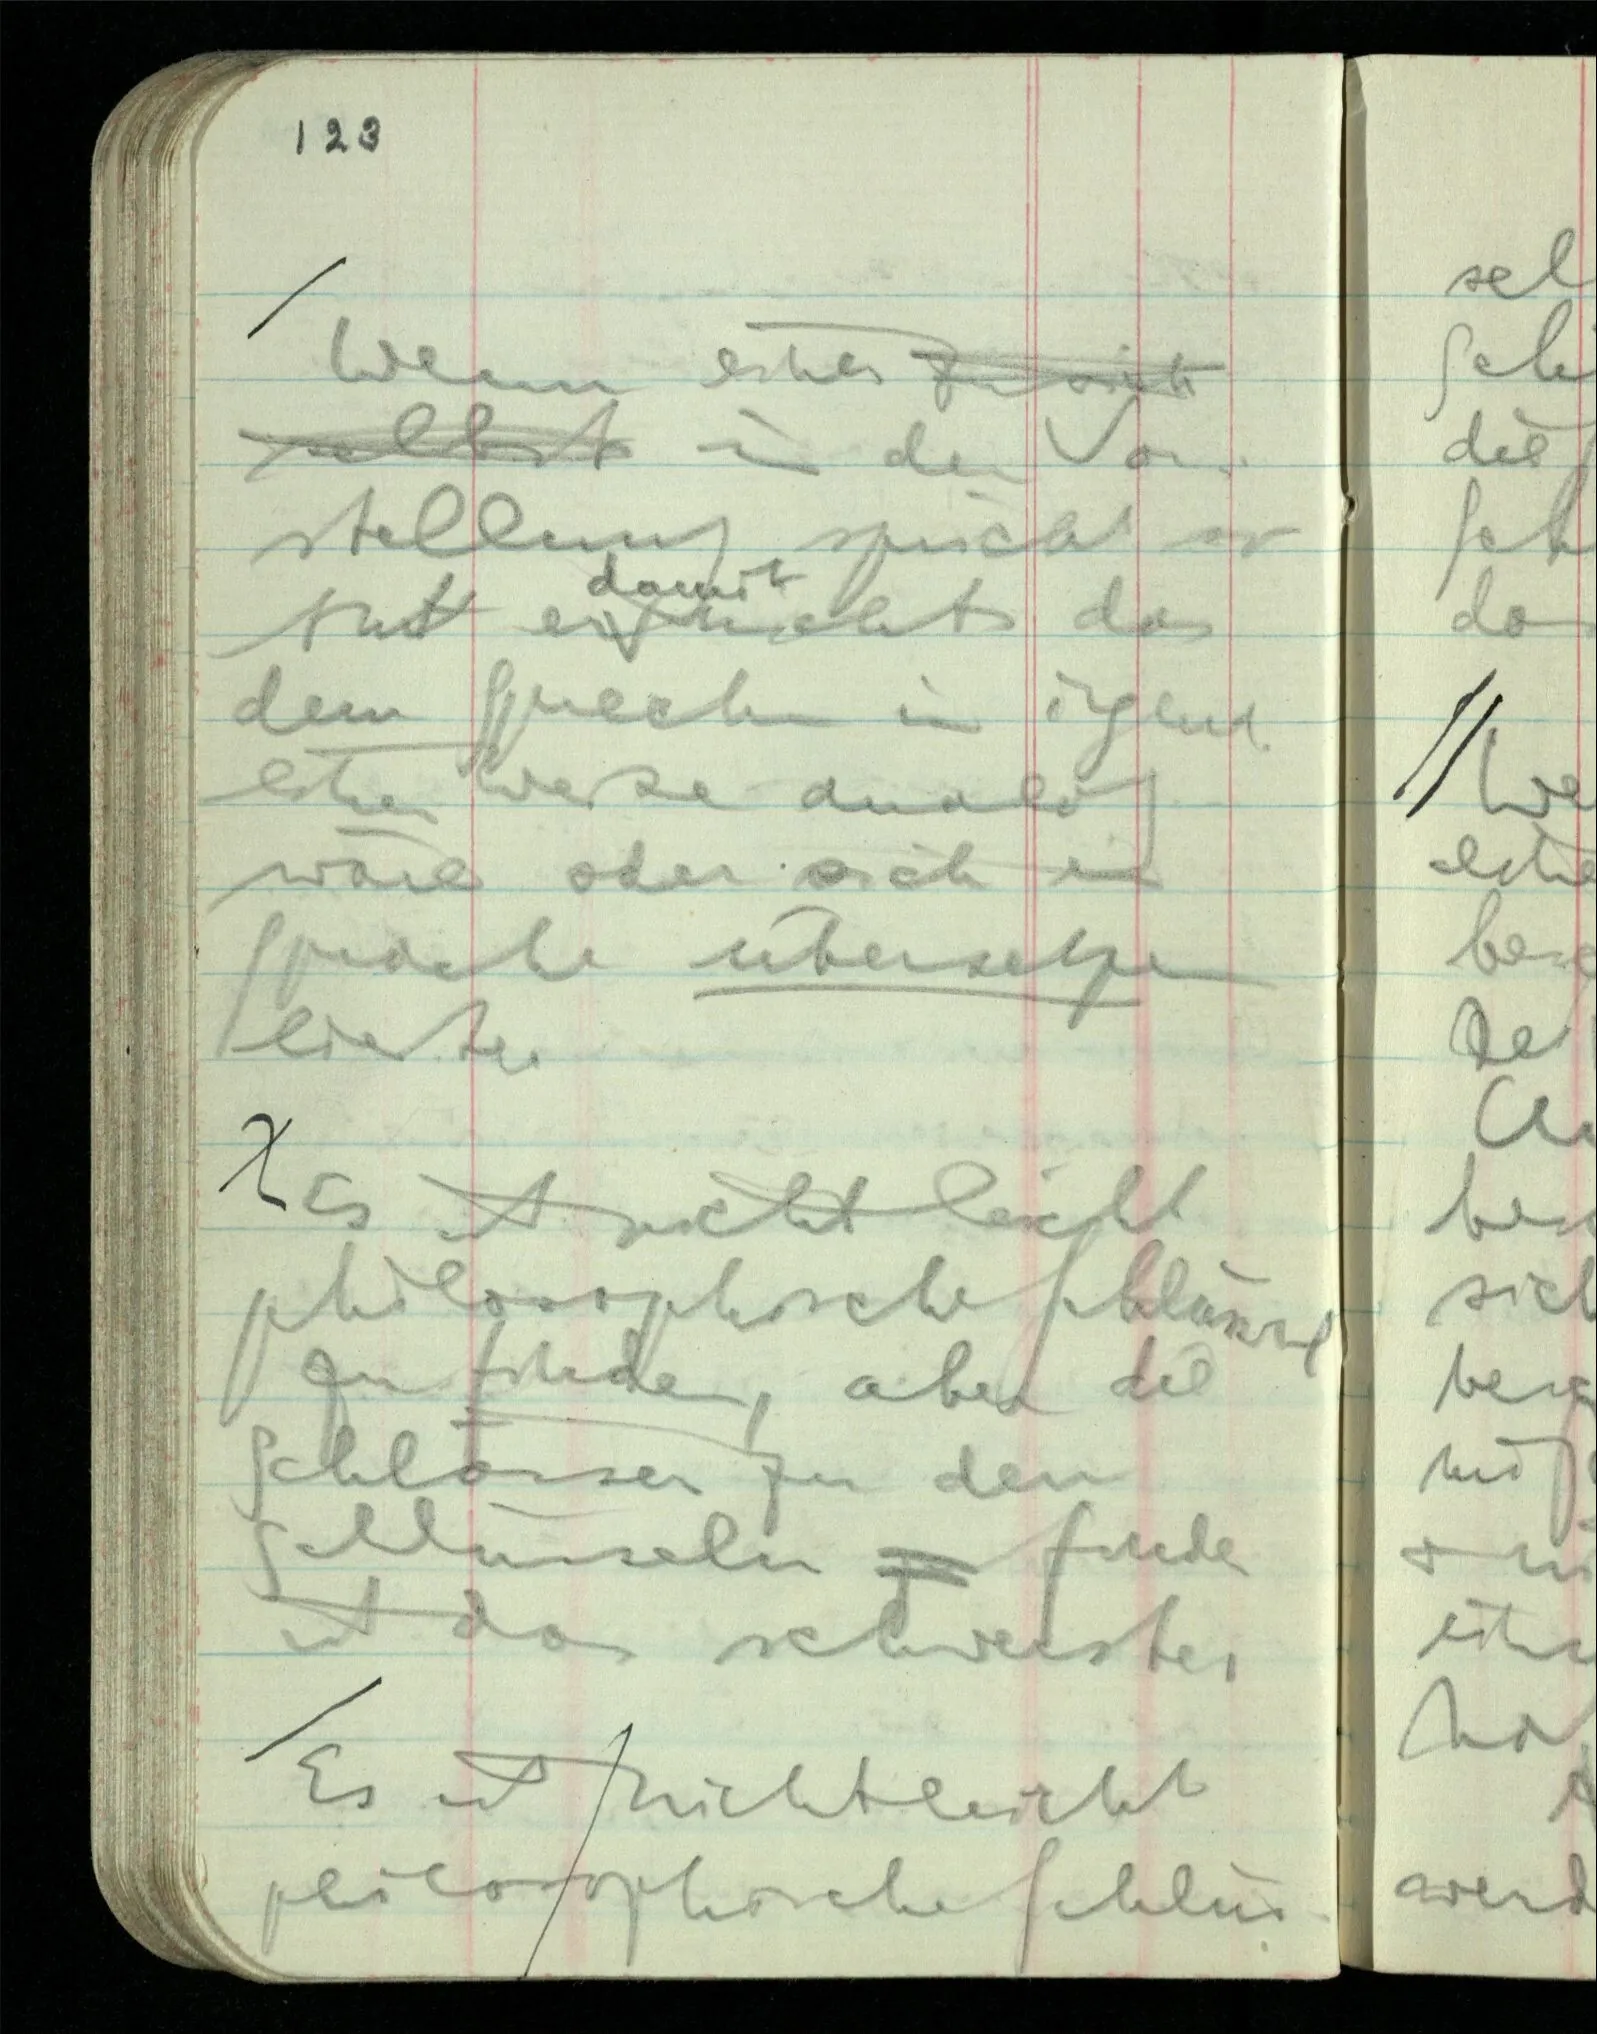 123
/
Wenn einer ~~zu sich~~
~~selbst~~ in der Vor-
stellung spricht so
tut er damit nichts das
dem Sprechen in irgend
einer Weise analog
wäre oder sich in
Sprache übersetzen
ließe.
Es ist nicht leicht
philosophische Schlüssel
zu finden, aber die
Schlösser zu den
Schlüsseln finden
ist das schwerste.
/
Es ist nicht leicht
philosophische Schlüs-
sel
die
//
We
bes
sich
werd